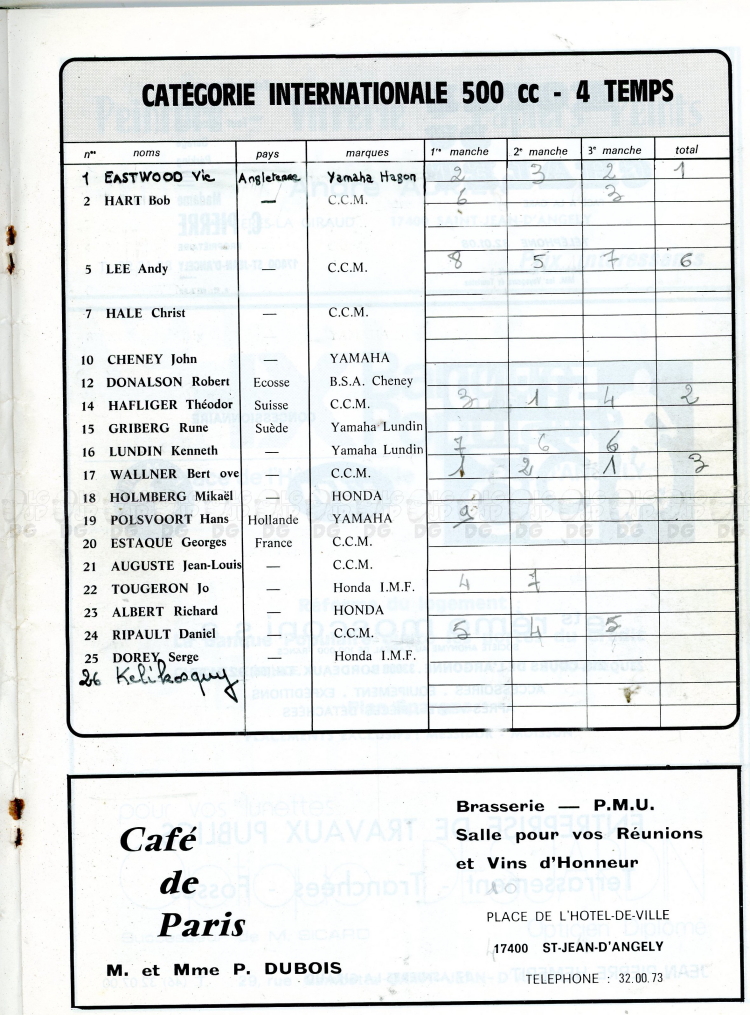 CATÉGORIE INTERNATIONALE 500 cc - 4 TEMPS
nos noms pays marques 1re manche 2e manche 3e manche total
1 EASTWOOD Vic Angleterre Yamaha Hagon 2 3 2 1
2 HART Bob — C.C.M. 6 3
5 LEE Andy — C.C.M. 8 5 7 6
7 HALE Christ — C.C.M.
10 CHENEY John — YAMAHA
12 DONALSON Robert Ecosse B.S.A. Cheney
14 HAFLIGER Théodor Suisse C.C.M. 3 1 4 2
15 GRIBERG Rune Suède Yamaha Lundin
16 LUNDIN Kenneth — Yamaha Lundin 7 6 6
17 WALLNER Bert ove — C.C.M. 1 2 1 3
18 HOLMBERG Mikaël — HONDA
19 POLSVOORT Hans Hollande YAMAHA 9
20 ESTAQUE Georges France C.C.M.
21 AUGUSTE Jean-Louis — C.C.M.
22 TOUGERON Jo — Honda I.M.F. 4 7
23 ALBERT Richard — HONDA
24 RIPAULT Daniel — C.C.M. 5 4 5
25 DOREY Serge — Honda I.M.F.
26
Café
de
Paris
M. et Mme P. DUBOIS
Brasserie — P.M.U.
Salle pour vos Réunions
et Vins d'Honneur
PLACE DE L'HOTEL-DE-VILLE
17400 ST-JEAN-D'ANGELY
TELEPHONE : 32.00.73